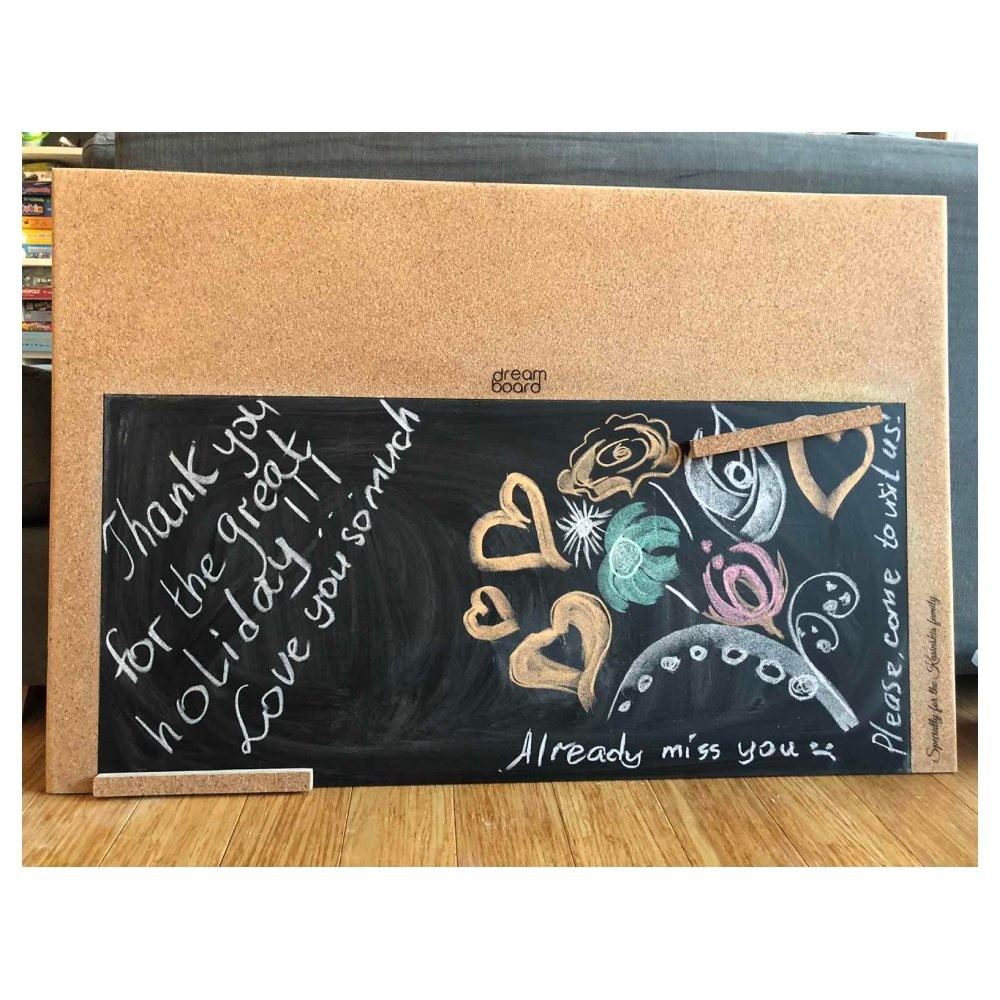 dream
board
Thank you
for the great
holiday!!!
Love you so much
Already miss you
Please, come to visit us!
Specially for the family
MONOPOLY